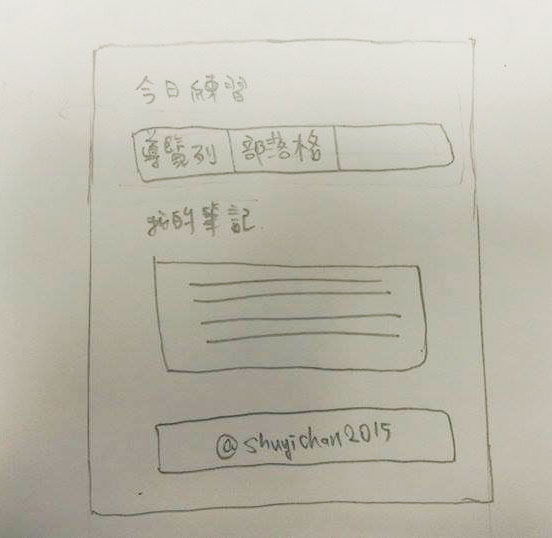 今日練習
導覽列 部落格
我的筆記
@shuyichan2015